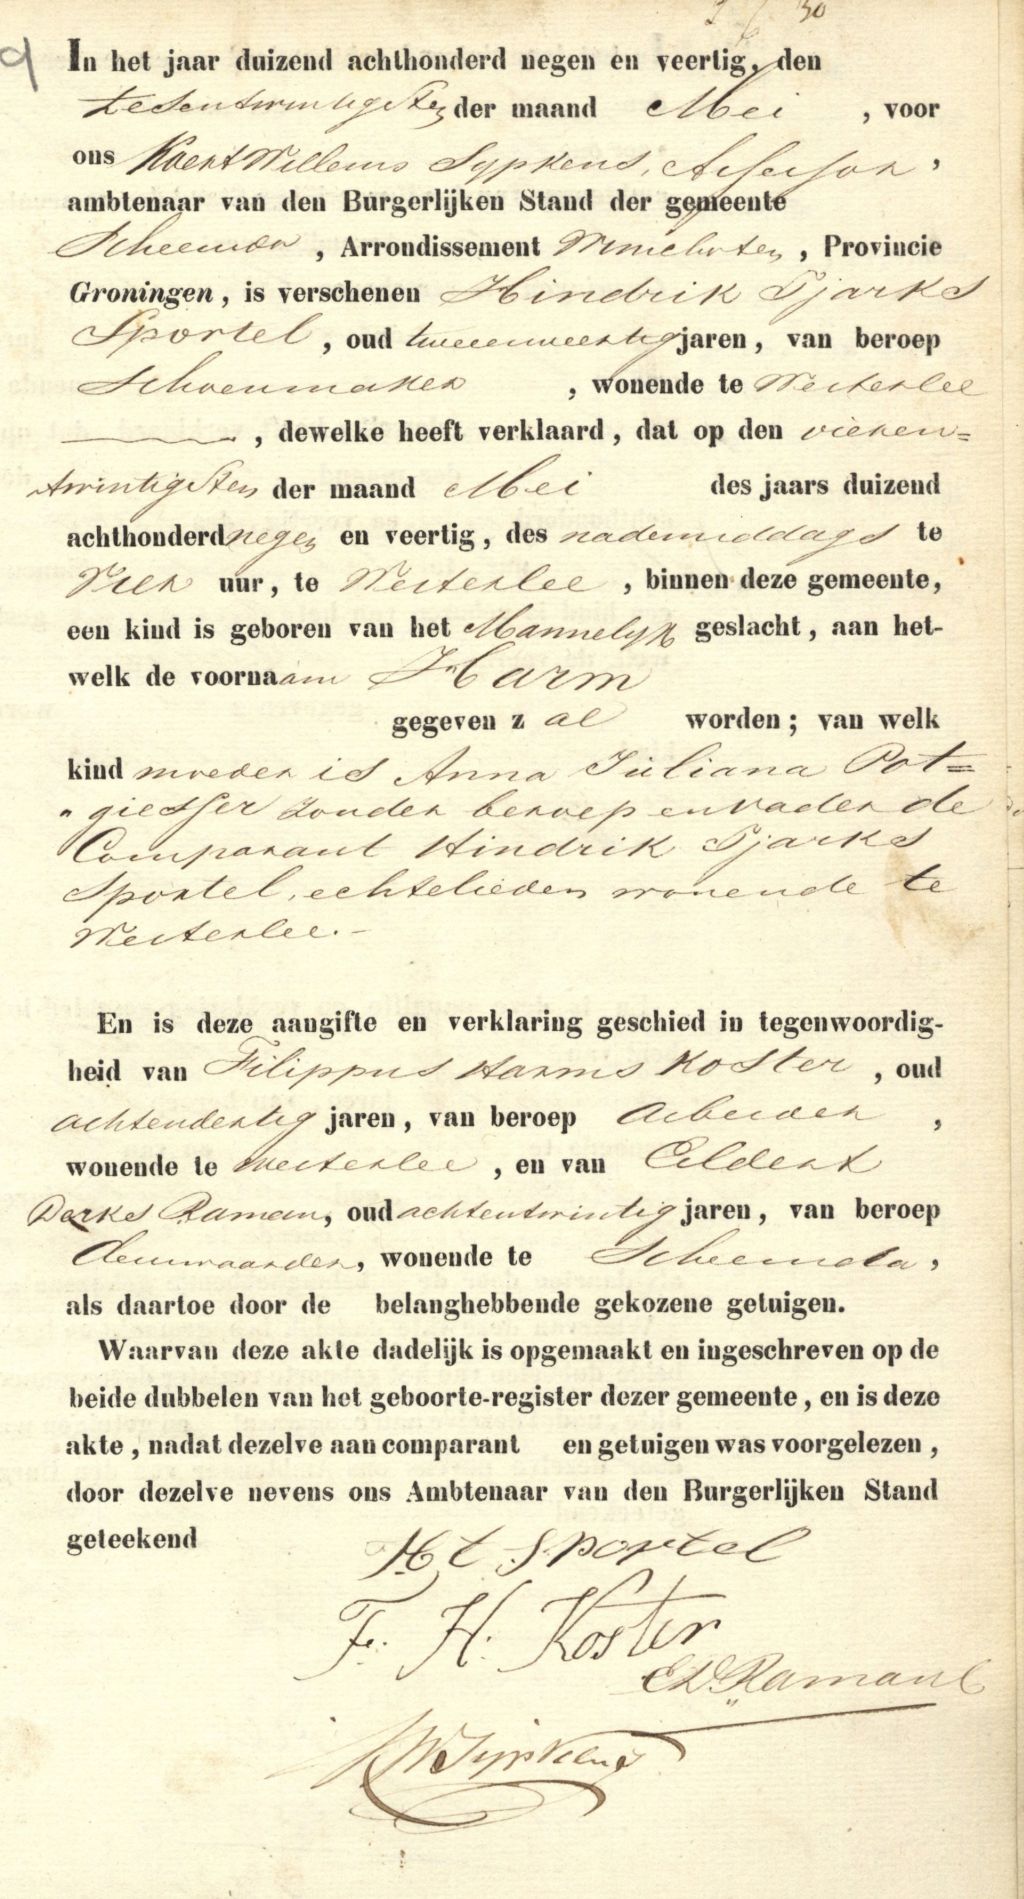 30
9
In het jaar duizend achthonderd negen en veertig, den
zesentwintigsten der maand Mei , voor
ons Koert Willems Sypkens, Assessor,
ambtenaar van den Burgerlijken Stand der gemeente
Scheemda , Arrondissement Winschoten , Provincie
Groningen, is verschenen Hindrik Tjarks
Sportel , oud tweeenveertig jaren, van beroep
Schoenmaker , wonende te Westerlee
, dewelke heeft verklaard, dat op den vieren=
twintigsten der maand Mei des jaars duizend
achthonderd negen en veertig, des nademiddags te
Vier uur, te Westerlee , binnen deze gemeente,
een kind is geboren van het Mannelijk geslacht, aan het-
welk de voornaam Harm
gegeven zal worden; van welk
kind moeder is Anna Juliana Pot=
"giesser zonder beroep en vader de
Comparant Hindrik Tjarks
Sportel, echtelieden wonende te
Westerlee.-
En is deze aangifte en verklaring geschied in tegenwoordig-
heid van Filippus Harms Koster , oud
achtendertig jaren, van beroep Arbeider ,
wonende te Westerlee , en van Eildert
Derks Raman, oud achtentwintig jaren, van beroep
deurwaarder, wonende te Scheemda,
als daartoe door de belanghebbende gekozene getuigen.
Waarvan deze akte dadelijk is opgemaakt en ingeschreven op de
beide dubbelen van het geboorte-register dezer gemeente, en is deze
akte, nadat dezelve aan comparant en getuigen was voorgelezen,
door dezelve nevens ons Ambtenaar van den Burgerlijken Stand
geteekend
H t Sportel
F. H. Koster
E D. Raman
KWSypkens